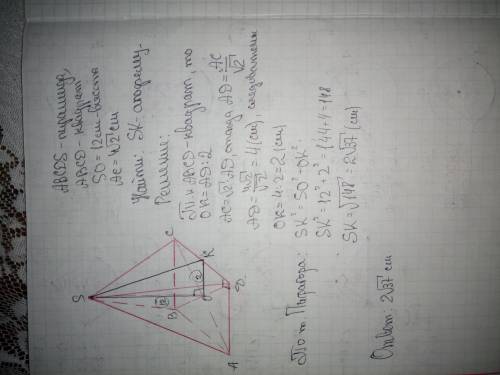 ABCDS - пирамида,
ABCD - квадрат
SO = 12 см - высота
AC = 4√2 см
Найти: SK - апофему.
Решение:
Т. к ABCD - квадрат, то
OK = AD : 2
AC = √2 AD, отсюда AD = AC/√2
AD = 4√2/√2 = 4 (см), следовательно
OK = 4 : 2 = 2 (см)
По т. Пифагора: SK² = SO² + OK²
SK² = 12² + 2² = 144 + 4 = 148
SK = √148 = 2√37 (см)
Ответ: 2√37 см
S
12
B
C
K
2
O
D
A